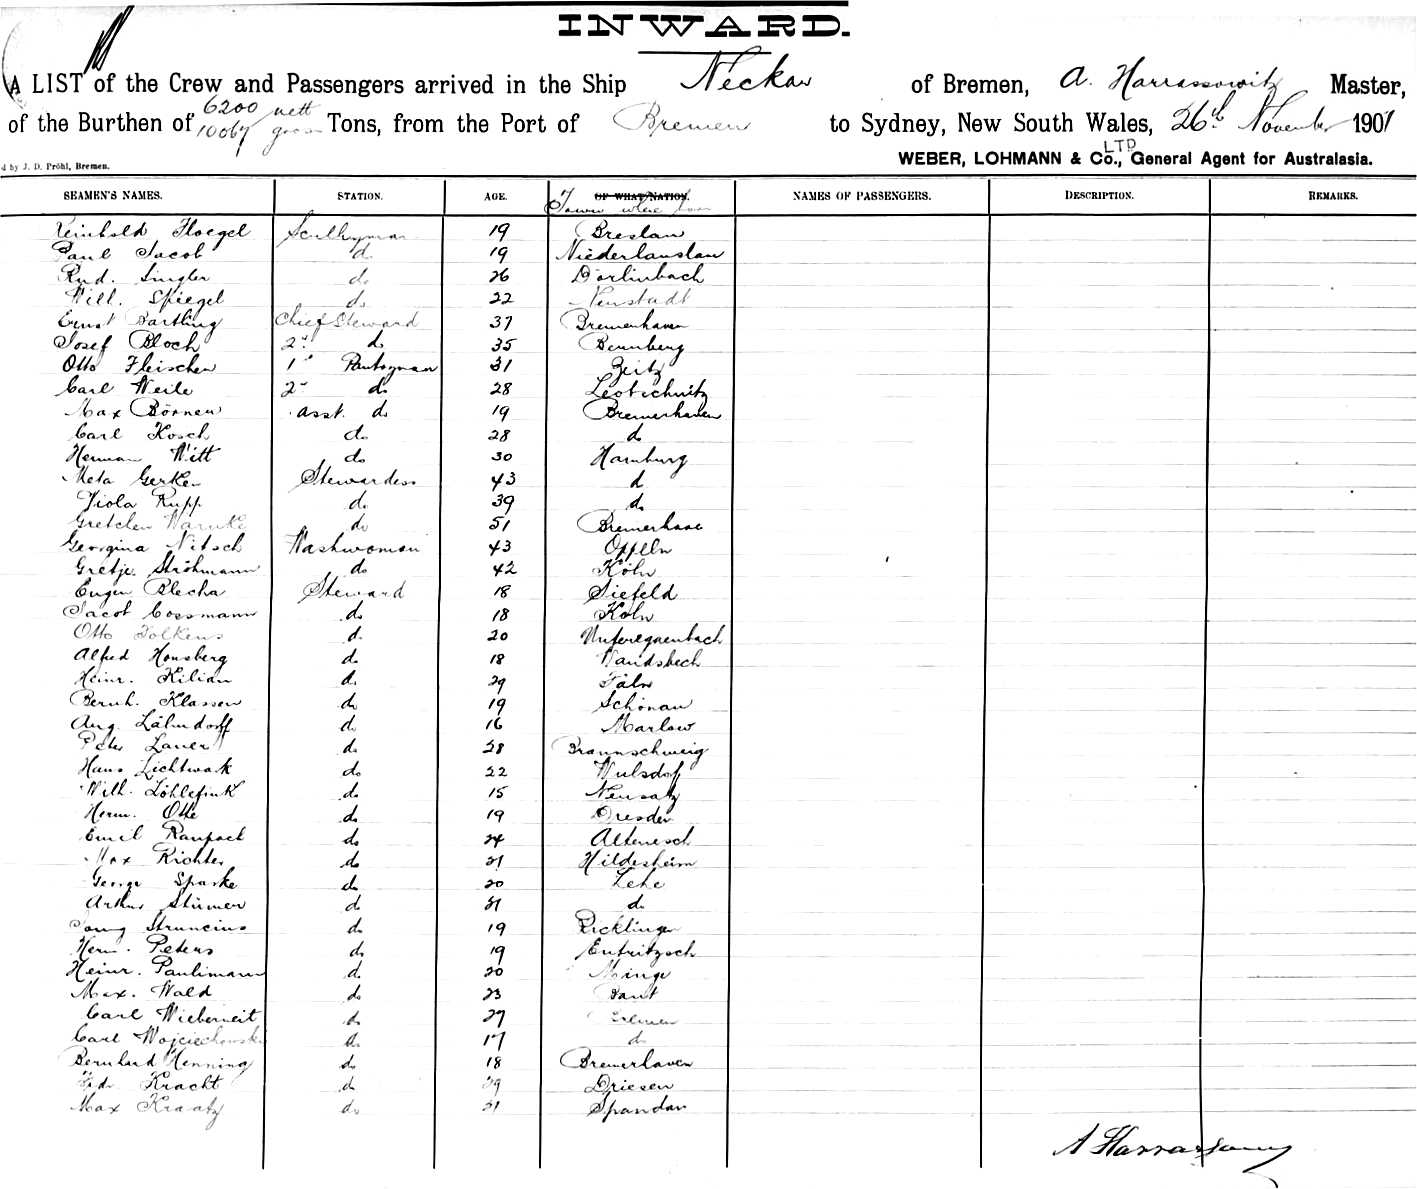 INWARD.
A LIST of the Crew and Passengers arrived in the Ship Neckar of Bremen, A. Harrassowitz Master,
of the Burthen of 6200 nett 10067 gross Tons, from the Port of Bremen to Sydney, New South Wales, 26th November 1901
d by J. D. Pröhl, Bremen. WEBER, LOHMANN & Co., LTD General Agent for Australasia.
SEAMEN'S NAMES. STATION. AGE. OF WHAT NATION. Town where born NAMES OF PASSENGERS. DESCRIPTION. REMARKS.
Reinhold Floegel Scullyman 19 Breslau
Paul Jacob do 19 Niederlauslau
Rud. Singler do 26 Dörlinbach
Will. Spiegel do 22 Neustadt
Ernst Bartling Chief Steward 37 Bremenhaven
Josef Bloch 2nd do 35
Otto Fleischer 1st Pantryman 31 Zeitz
Carl Weile 2nd do 28 Leobschütz
Max Börner asst. do 19 Bremerhaven
Carl Kosch do 28 do
Herman Witt do 30 Hamburg
Meta Gerken Stewardess 43 d
Viola Rupp do 39 do
Gretchen Warnke do 51
Georgina Nitsch Washwoman 43 Oppeln
Gretje Ströhmann do 42 Köln
Eugen Blecha Steward 18 Siefeld
Jacob Cossmann do 18 Köln
Otto Folkens d. 20
Alfred Honsberg do 18 Wandsbech
Heinr. Kilian do 29
Bernh. Klassen do 19 Schönau
Aug. Lähndorff do 16 Marlow
Peter Lauer do 28 Braunschweig
Hans Lichtwark do 22 Wulsdorf
Wilh. Löhlefink do 15 Neusatz
Herm. Otte do 19 Dresden
Emil Raupach do 24 Altenesch
Max Richter do 21 Hildesheim
George Sparke do 20 Lehe
Arthur Stürmer do 21 do
Struncius do 19 Ricklingen
Herm. Peters do 19 Eutritzsch
Heinr. Paulimann do 20 Minge
Max. Wald do 23 Bant
Carl Wieberneit do 27 Bremen
Carl Wojciechowski do 17 do
Bernhard Henning do 18 Bremerhaven
Kracht do 29 Driesen
Max Kraatz do 21 Spandau
A Harrassowitz